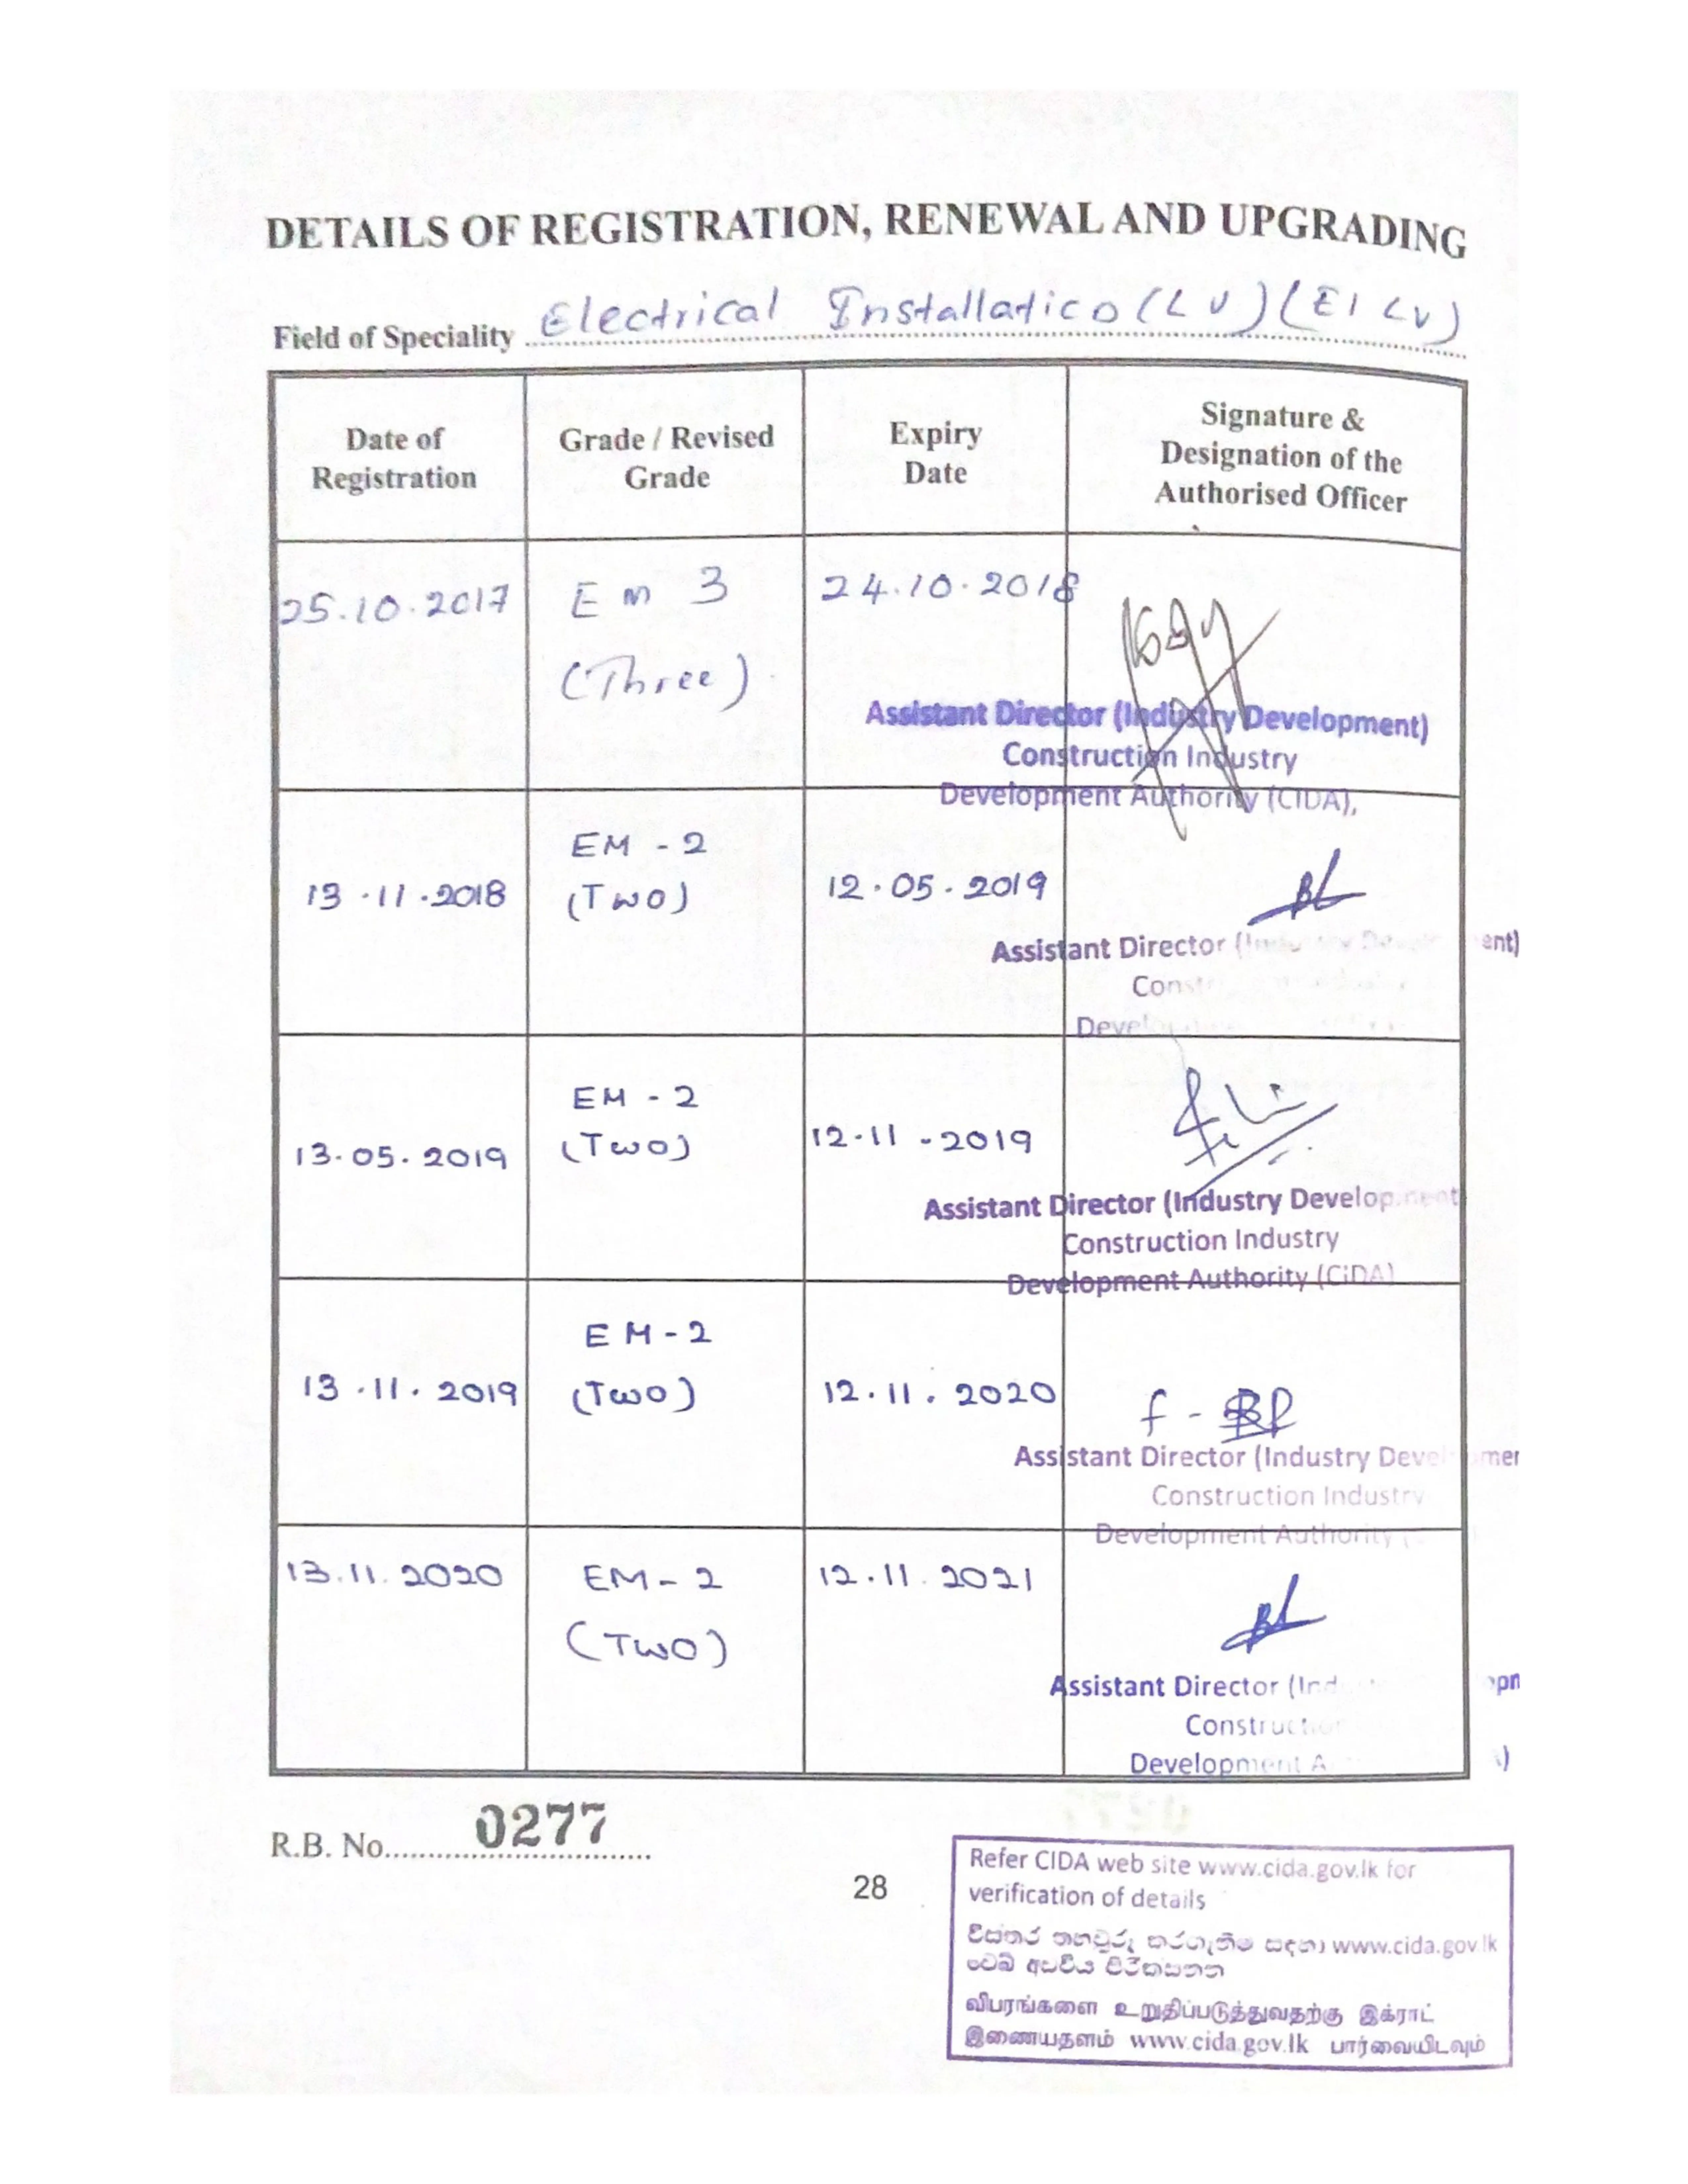 DETAILS OF REGISTRATION, RENEWAL AND UPGRADING
Field of Speciality Electrical Installatico (LV) (EI LV)
Date of Registration
Grade / Revised Grade
Expiry Date
Signature & Designation of the Authorised Officer
25.10.2017
Em 3
(Three)
24.10.2018
Assistant Director (Industry Development)
Construction Industry
Development Authority (CIDA),
13.11.2018
EM - 2
(Two)
12.05.2019
Assistant Director
13.05.2019
EM - 2
(Two)
12-11-2019
Assistant Director (Industry Development
Construction Industry
Development Authority (CiDA)
13.11.2019
EM-2
(Two)
12.11.2020
Assistant Director (Industry
Construction Industry
Development Authority
13.11.2020
EM-2
(Two)
12.11.2021
Assistant Director
Development
R.B. No. 0277
28
Refer CIDA web site www.cida.gov.lk for
verification of details
විස්තර තහවුරු කරගැනීම සඳහා www.cida.gov.lk
වෙබ් අඩවිය පිරික්සන්න
விபரங்களை உறுதிப்படுத்துவதற்கு இக்ராட்
இணையதளம் www.cida.gov.lk பார்வையிடவும்